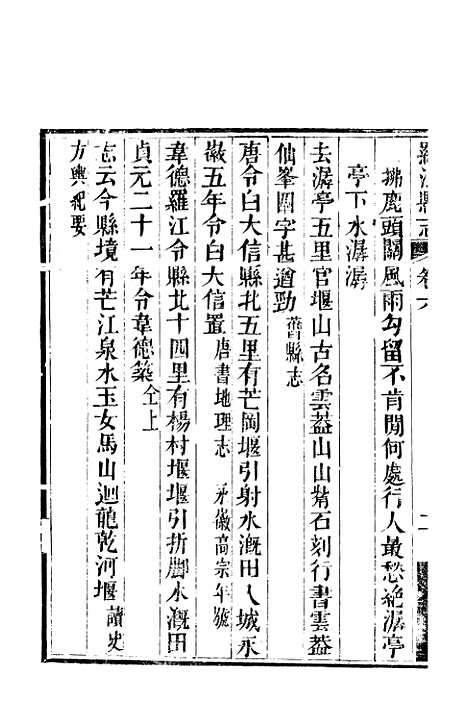 羅江縣志 卷六 二
拂鹿頭關風雨勾留不肯閒何處行人最愁絕潺亭
亭下水潺潺
去潺亭五里官堰山古名雲葢山山觜石刻行書雲葢
仙峯四字甚遒勁 舊縣志
唐令白大信縣北五里有芒岡堰引射水溉田入城永
徽五年令白大信置 唐書地理志 永徽高宗年號
韋德羅江令縣北十四里有楊村堰堰引折腳水溉田
貞元二十一年令韋德築 仝上
志云今縣境有芒江泉水玉女馬山迴龍乾河堰 讀史
方輿紀要